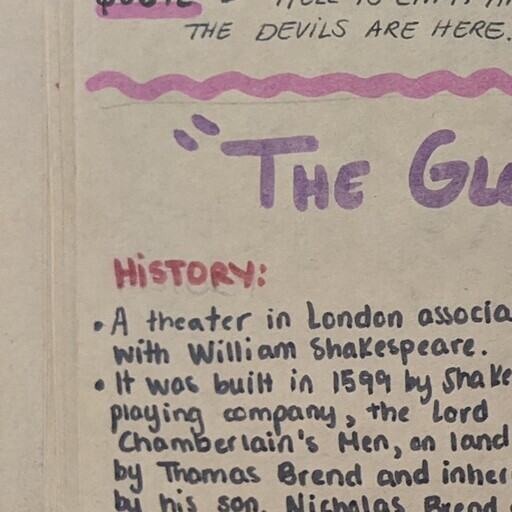 QUOTE - "HELL IS EMPTY AN
THE DEVILS ARE HERE.
"THE GL
HISTORY:
• A theater in London associa
with William Shakespeare.
• It was built in 1599 by Shake
playing company, the Lord
Chamberlain's Men, on land
by Thomas Brend and inher
by his son, Nicholas Brend